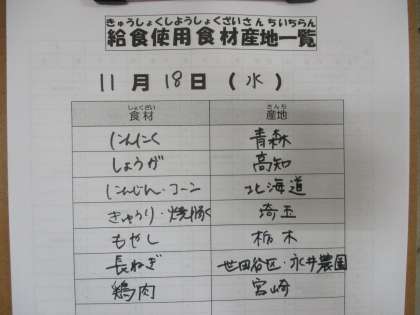 きゅうしょくしようしょくざいさんちいちらん
給食使用食材産地一覧
11月18日(水)
しょくざい さんち
食材 産地
にんにく 青森
しょうが 高知
にんじん・コーン 北海道
きゅうり・焼豚 埼玉
もやし 栃木
長ねぎ 世田谷区・永井農園
鶏肉 宮崎